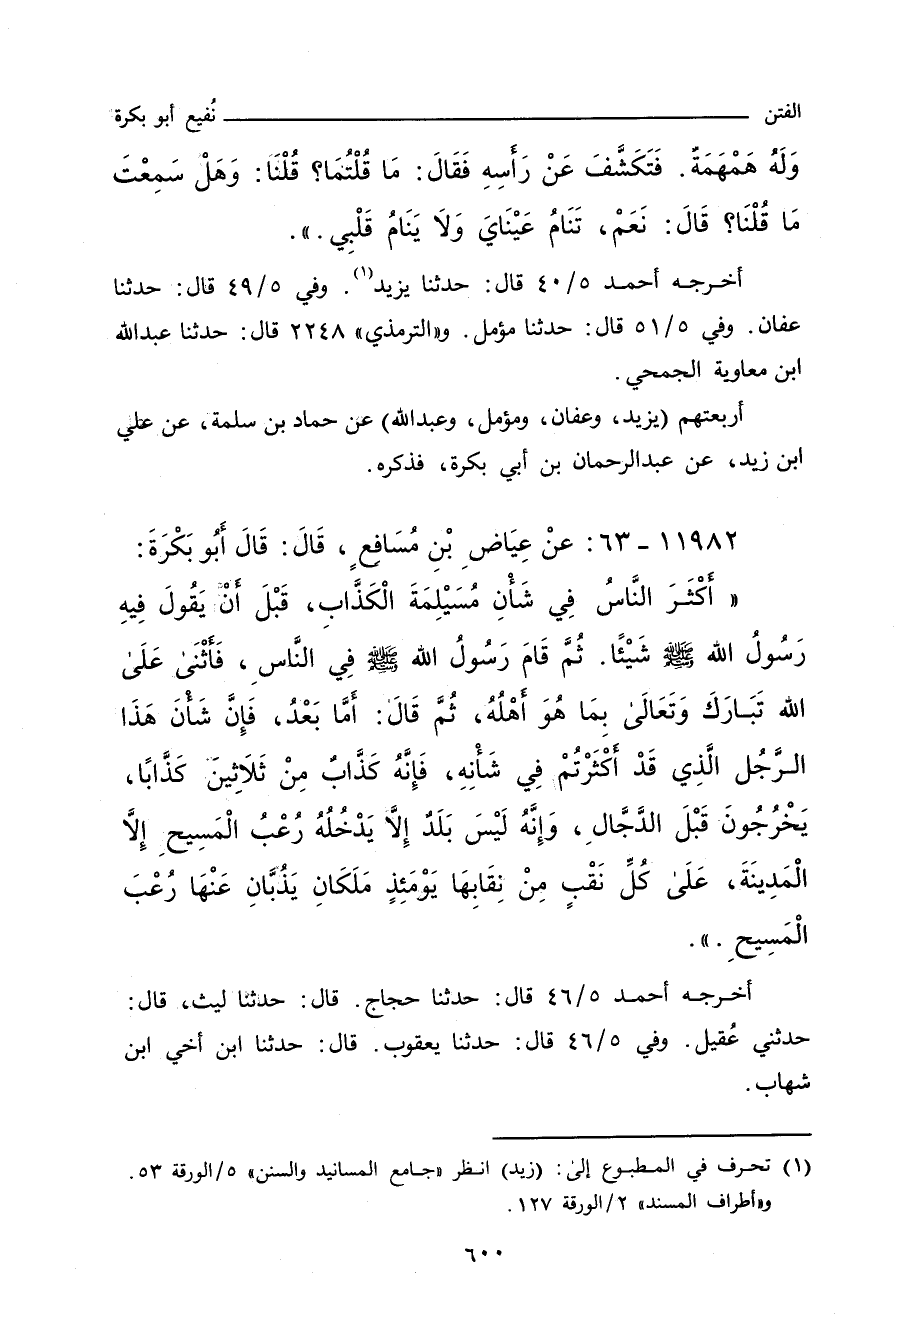 الفتن ــــــــــــــــــــ نُفيع أبو بكرة
وَلَهُ هَمْهَمَةٌ. فَتَكَشَّفَ عَنْ رَأْسِهِ فَقَالَ: مَا قُلْتُمَا؟ قُلْنَا: وَهَلْ سَمِعْتَ
مَا قُلْنَا؟ قَالَ: نَعَمْ، تَنَامُ عَيْنَايَ وَلَا يَنَامُ قَلْبِي.».
أخرجه أحمد ٤٠/٥ قال: حدثنا يزيد(١). وفي ٤٩/٥ قال: حدثنا
عفان. وفي ٥١/٥ قال: حدثنا مؤمل. و«الترمذي» ٢٢٤٨ قال: حدثنا عبدالله
ابن معاوية الجمحي.
أربعتهم (يزيد، وعفان، ومؤمل، وعبدالله) عن حماد بن سلمة، عن علي
ابن زيد، عن عبدالرحمان بن أبي بكرة، فذكره.
١١٩٨٢ - ٦٣: عَنْ عِيَاضِ بْنِ مُسَافِعٍ، قَالَ: قَالَ أَبُو بَكْرَةَ:
« أَكْثَرَ النَّاسُ فِي شَأْنِ مُسَيْلِمَةَ الْكَذَّابِ، قَبْلَ أَنْ يَقُولَ فِيهِ
رَسُولُ الله ﷺ شَيْئًا. ثُمَّ قَامَ رَسُولُ الله ﷺ فِي النَّاسِ، فَأَثْنَىٰ عَلَىٰ
الله تَبَارَكَ وَتَعَالَىٰ بِمَا هُوَ أَهْلُهُ، ثُمَّ قَالَ: أَمَّا بَعْدُ، فَإِنَّ شَأْنَ هَذَا
الرَّجُلِ الَّذِي قَدْ أَكْثَرْتُمْ فِي شَأْنِهِ، فَإِنَّهُ كَذَّابٌ مِنْ ثَلَاثِينَ كَذَّابًا،
يَخْرُجُونَ قَبْلَ الدَّجَّالِ، وَإِنَّهُ لَيْسَ بَلَدٌ إِلَّا يَدْخُلُهُ رُعْبُ الْمَسِيحِ إِلَّا
الْمَدِينَةَ، عَلَىٰ كُلِّ نَقْبٍ مِنْ نِقَابِهَا يَوْمَئِذٍ مَلَكَانِ يَذُبَّانِ عَنْهَا رُعْبَ
الْمَسِيحِ.».
أخرجه أحمد ٤٦/٥ قال: حدثنا حجاج. قال: حدثنا ليث، قال:
حدثني عُقيل. وفي ٤٦/٥ قال: حدثنا يعقوب. قال: حدثنا ابن أخي ابن
شهاب.
(١) تحرف في المطبوع إلىٰ: (زيد) انظر «جامع المسانيد والسنن» ٥/الورقة ٥٣.
و«أطراف المسند» ٢/الورقة ١٢٧.
٦٠٠